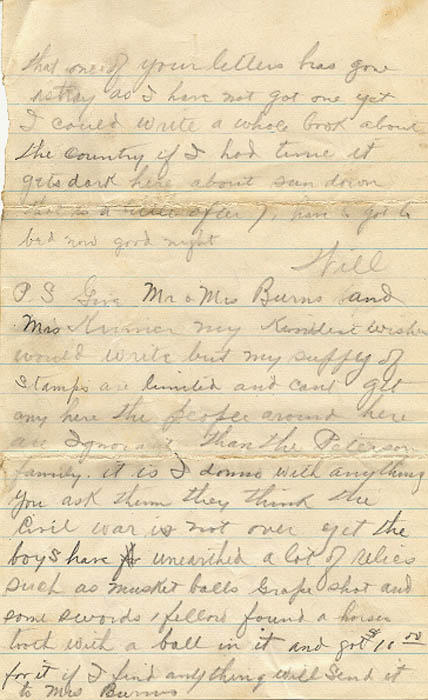 that one of your letters has gone
astray as I have not got one yet
I could write a whole book about
the country if I had time it
gets dark here about sun down
that is a little after 7, have to got to
bed now good night
Will
P.S Give Mr & Mrs Burns and
Mrs Kramer my Kindest wishes
would write but my supply of
stamps are limited and cant get
any here the people around here
are Ignorant than the Peterson
family. it is I donno with anything
you ask them they think the
Civil war is not over yet the
boys have unearthed a lot of relics
such as musket balls Grape shot and
some swords 1 fellow found a horses
tooth with a ball in it and got $10 00
for it if I find anything will send it
to Mrs Burns